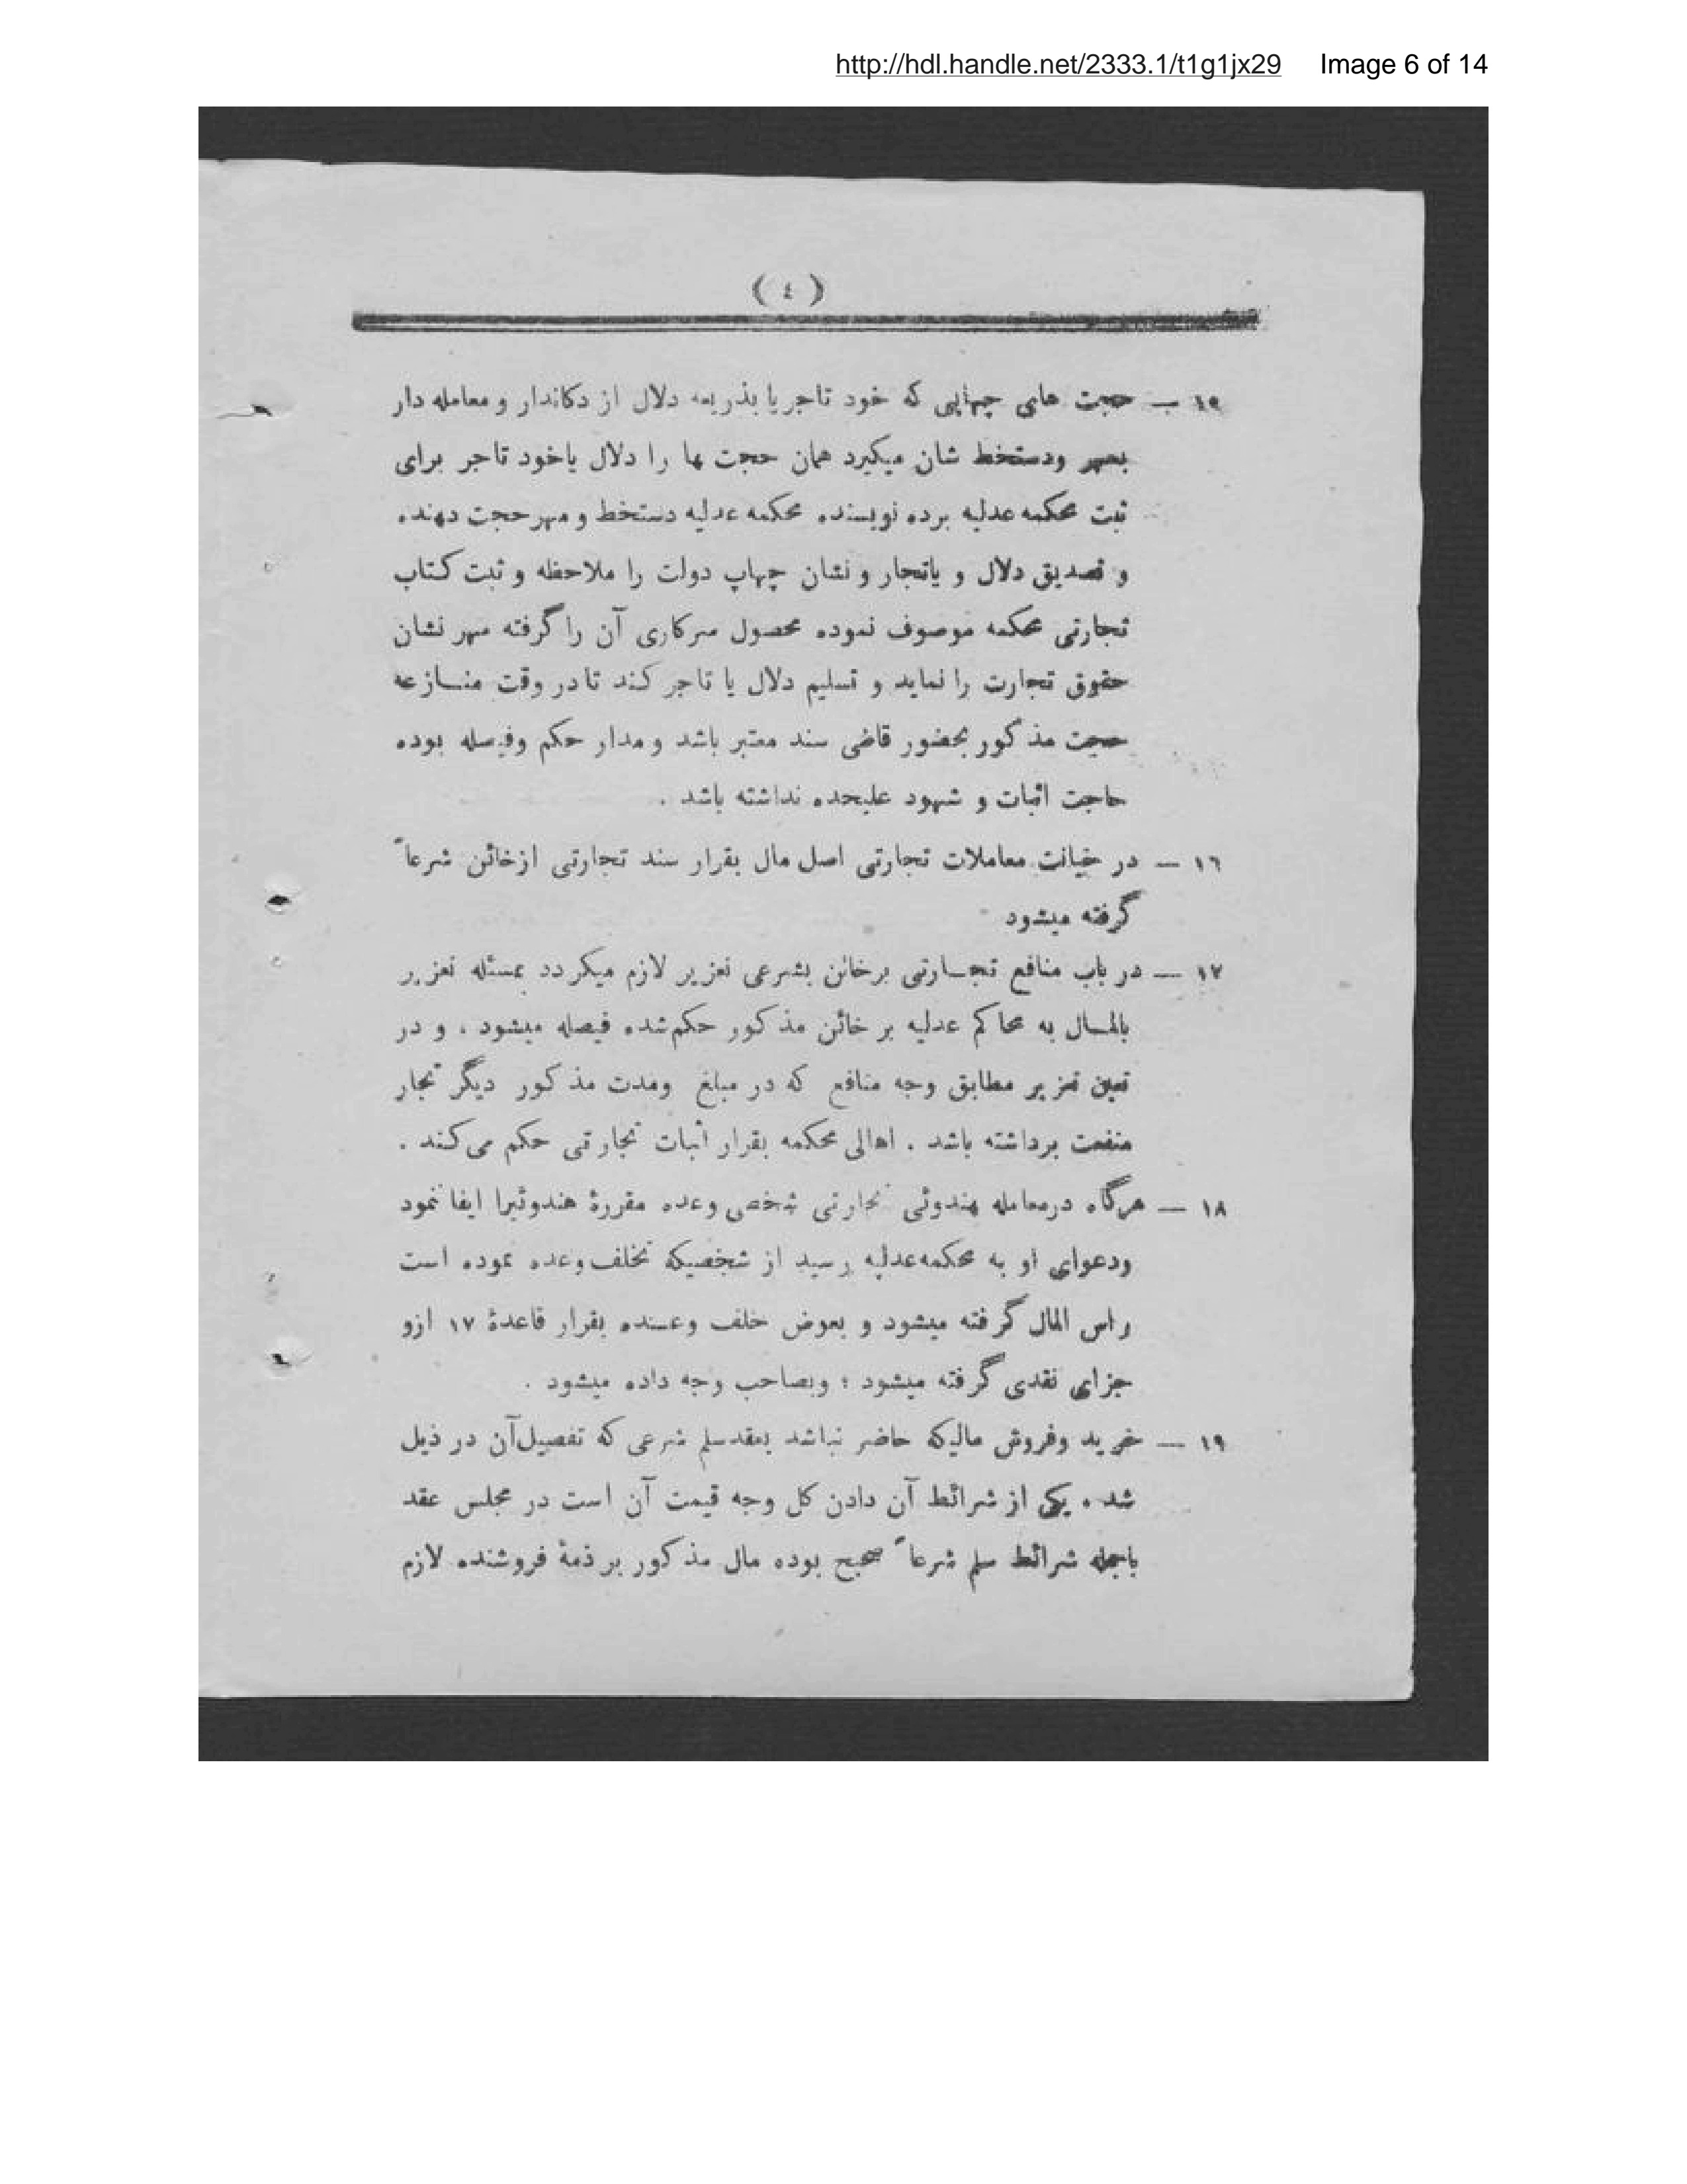 http://hdl.handle.net/2333.1/t1g1jx29 Image 6 of 14
( ٤ )
١٥ — حجت های چهاپی که خود تاجر یا بذریعه دلال از دکاندار و معامله دار
بمهر ودستخط شان میگیرد همان حجت ها را دلال یاخود تاجر برای
ثبت محکمه عدلیه برده نویسنده محکمه عدلیه دستخط و مهر حجت دهنده
و تصدیق دلال و یاتجار و نشان چهاپ دولت را ملاحظه و ثبت کتاب
تجارتی محکمه موصوف نموده محصول سرکاری آن را گرفته مهر نشان
حقوق تجارت را نماید و تسلیم دلال یا تاجر کند تا در وقت منازعه
حجت مذکور بحضور قاضی سند معتبر باشد و مدار حکم وفیصله بوده
حاجت اثبات و شهود علیحده نداشته باشد .
١٦ — در خیانت معاملات تجارتی اصل مال بقرار سند تجارتی ازخائن شرعاً
گرفته میشود
١٧ — در باب منافع تجارتی برخائن بشرعی تعزیر لازم میگردد بمسئله تعزیر
بالمال به محاکم عدلیه بر خائن مذکور حکم شده فیصله میشود ، و در
تعین تعزیر مطابق وجه منافع که در مبلغ ومدت مذکور دیگر تجار
منفعت برداشته باشد . اهالی محکمه بقرار اثبات تجارتی حکم می کنند .
١٨ — هرگاه درمعامله هندوئی تجارتی شخصی وعده مقررهٔ هندوئیرا ایفا ننمود
ودعوای او به محکمه عدلیه رسید از شخصیکه تخلف وعده نموده است
راس المال گرفته میشود و بعوض خلف وعده بقرار قاعدهٔ ١٧ ازو
جزای نقدی گرفته میشود ؛ وبصاحب وجه داده میشود .
١٩ — خرید وفروش مالیکه حاضر نباشد بعقد سلم شرعی که تفصیل آن در ذیل
شده یکی از شرائط آن دادن کل وجه قیمت آن است در مجلس عقد
باجمله شرائط سلم شرعاً صحیح بوده مال مذکور بر ذمهٔ فروشنده لازم